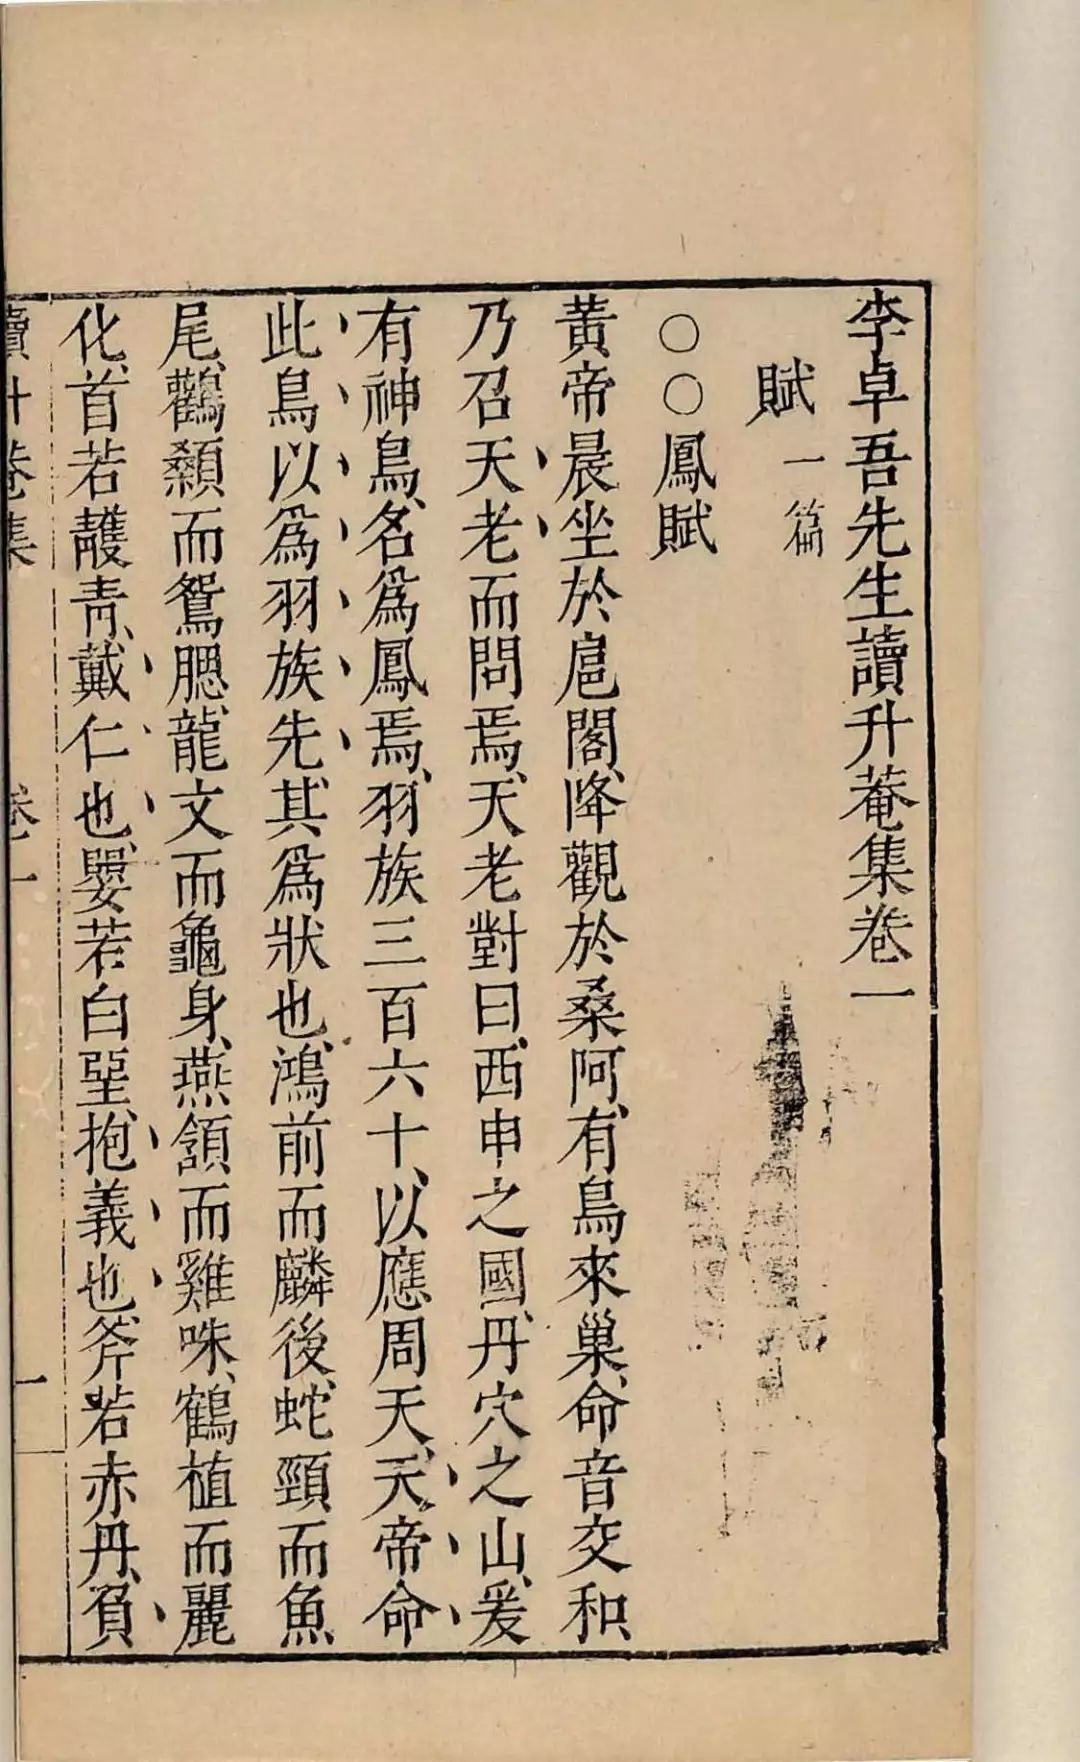 李卓吾先生讀升菴集卷一
賦 一篇
○○鳳賦
黃帝晨坐於扈閣、降觀於桑阿、有鳥來巢、命音交和、
乃召天老而問焉、天老對曰、西申之國、丹穴之山、爰
有神鳥、名爲鳳焉、羽族三百六十、以應周天、天帝命
此鳥以爲羽族先、其爲狀也、鴻前而麟後、蛇頸而魚
尾、鸛顙而鴛腮、龍文而龜身、燕頷而雞咮、鶴植而麗
化、首若䨼靑、戴仁也、嬰若白堊、抱義也、斧若赤丹、負
讀升菴集 卷一 一